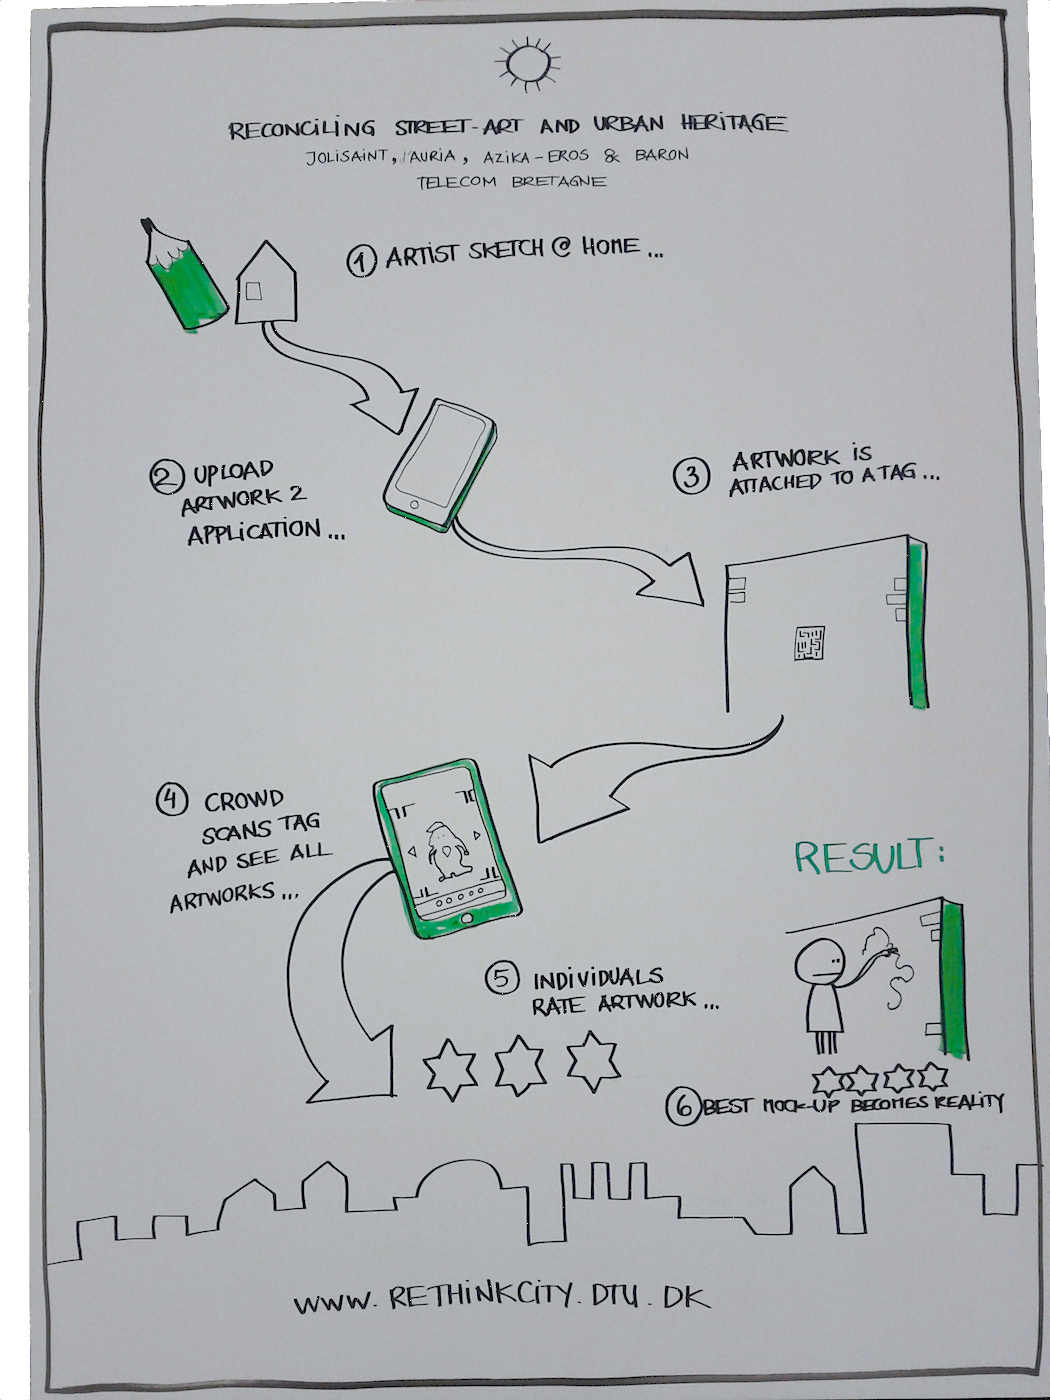 RECONCILING STREET-ART AND URBAN HERITAGE
JOLISAINT, IAURIA, AZIKA-EROS & BARON
TELECOM BRETAGNE
1 ARTIST SKETCH @ HOME ...
2 UPLOAD
ARTWORK 2
APPLICATION ...
3 ARTWORK IS
ATTACHED TO A TAG ...
4 CROWD
SCANS TAG
AND SEE ALL
ARTWORKS ...
5 INDIVIDUALS
RATE ARTWORK ...
RESULT:
6 BEST MOCK-UP BECOMES REALITY
WWW. RETHINKCITY. DTU. DK